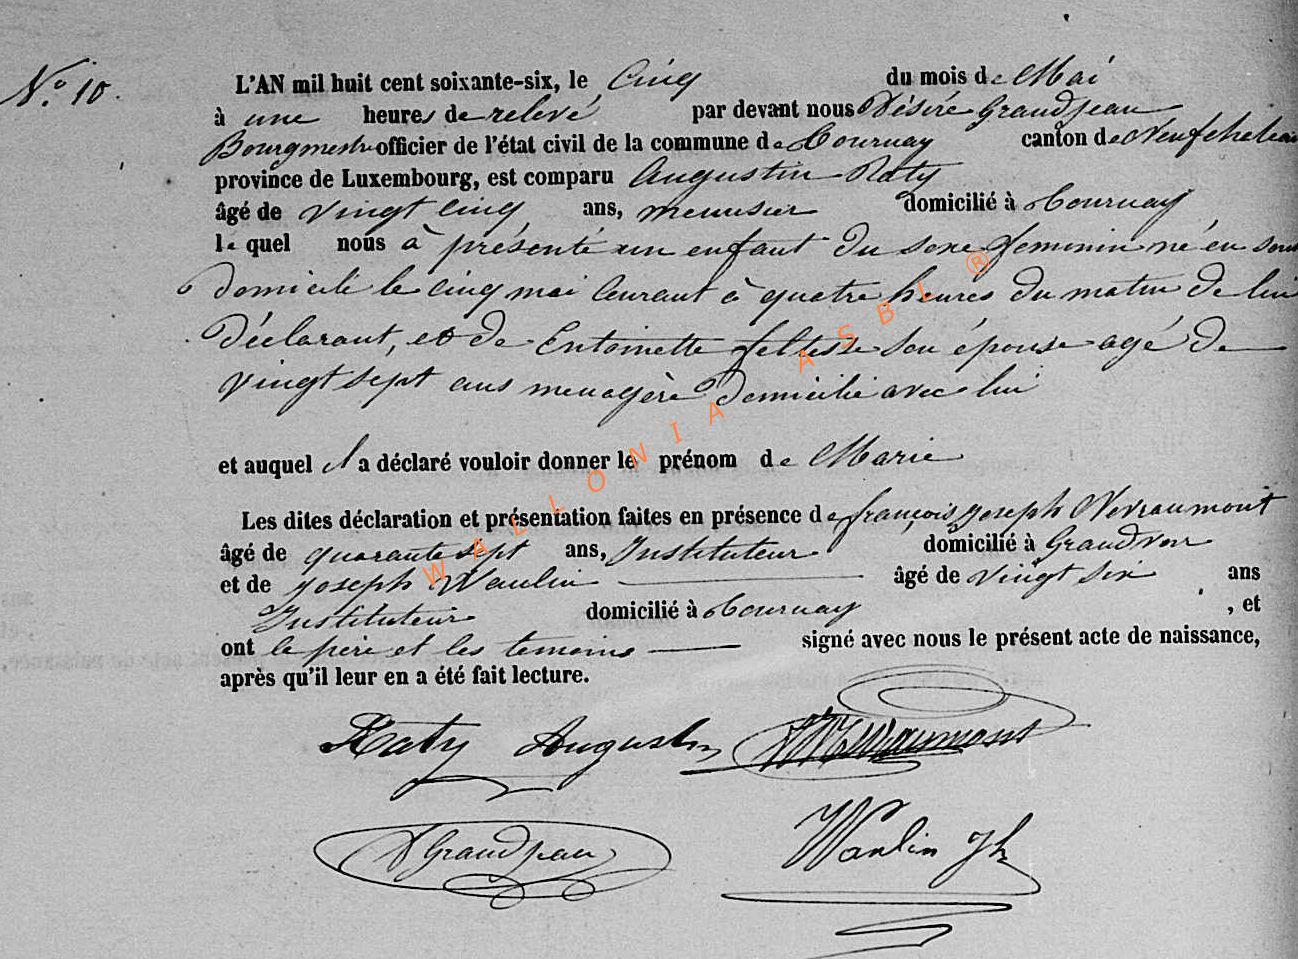 N.° 10.
L'AN mil huit cent soixante-six, le Cinq du mois de Mai
à une heures de relevé par devant nous Désiré Grandjean
Bourgmestre officier de l'état civil de la commune de Tournay canton de Neufchateau
province de Luxembourg, est comparu Augustin Raty
âgé de vingt cinq ans, menusier domicilié à Tournay
le quel nous à présenté un enfant du sexe feminin né en son
domicile le cinq mai Courant à quatre heures du matin de lui
déclarant, et de Entoinette feltesse son épouse agé de
vingt sept ans menagère domicilié avec lui
et auquel il a déclaré vouloir donner le prénom de Marie
Les dites déclaration et présentation faites en présence de françois joseph Nevraumont
âgé de quarante sept ans, Instituteur domicilié à Grandvoir
et de joseph Waulin âgé de vingt six ans
Instituteur domicilié à Tournay , et
ont le père et les temoins signé avec nous le présent acte de naissance,
après qu'il leur en a été fait lecture.
Raty Augustin Nevraumont
D Grandjean Waulin Jh
WALLONIA ASBL ®